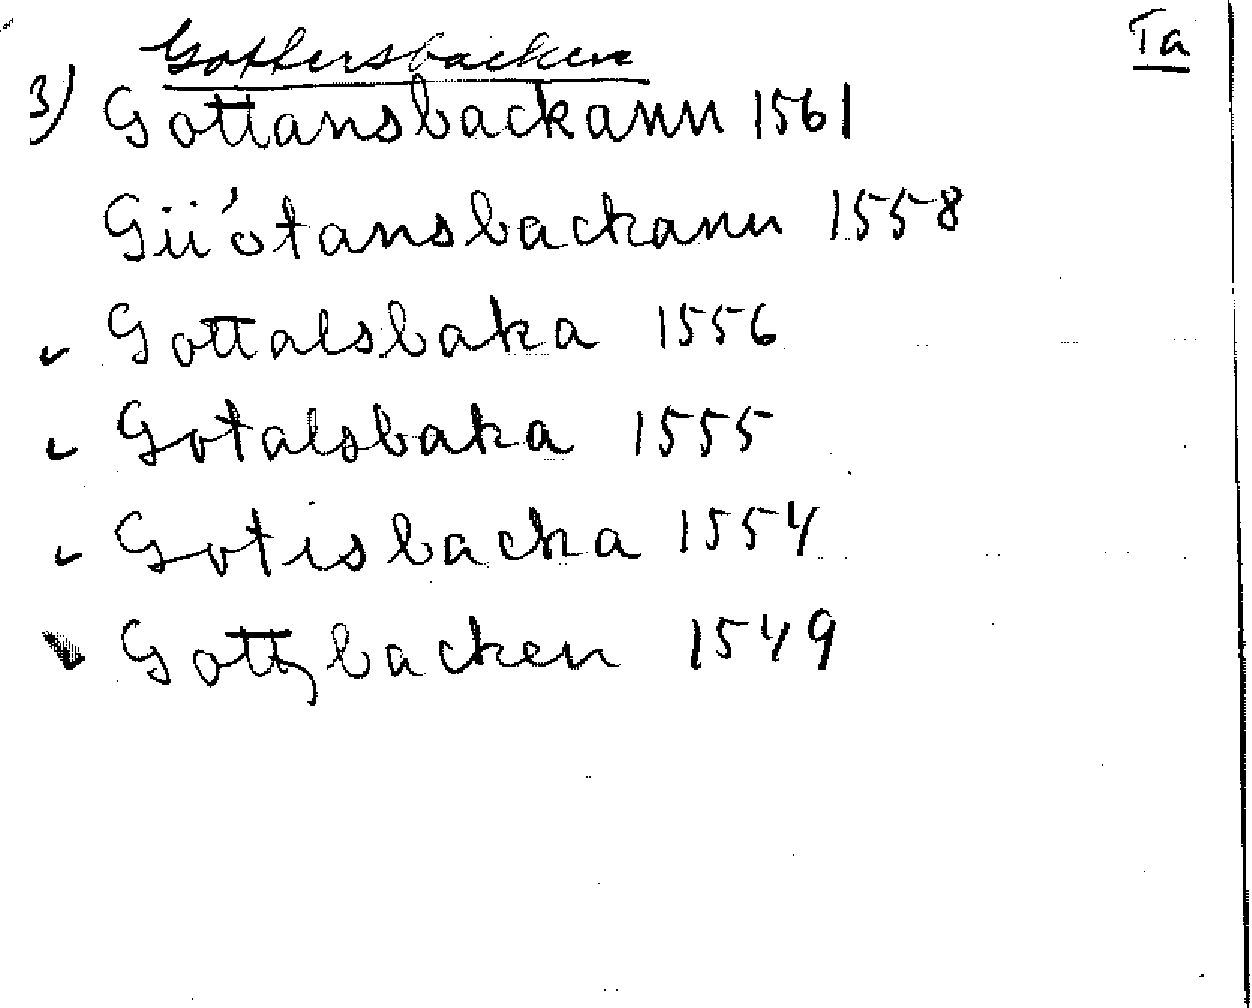 Gottersbacken Ta
3) Gottansbackann 1561
Giiótansbackann 1558
Gottalsbaka 1556
Gotalsbaka 1555
Gotisbacka 1554
Gottzbacken 1549